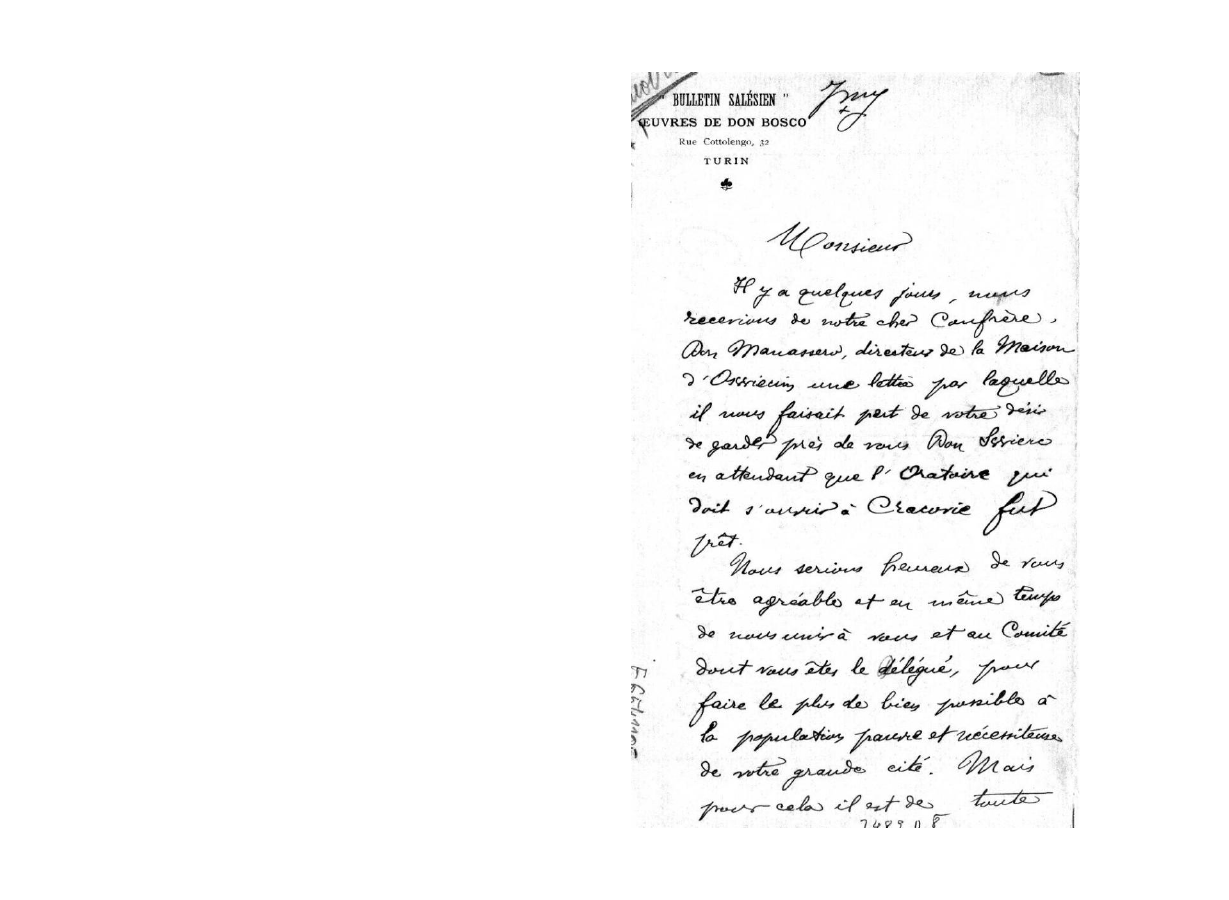 " BULLETIN SALÉSIEN "
ŒUVRES DE DON BOSCO
Rue Cottolengo, 32
TURIN
Monsieur
Il y a quelques jours, nous
recevions de notre cher Confrère,
Don Manassero, directeur de la Maison
d'Oswiecim une lettre par laquelle
il nous faisait part de votre désir
de garder près de vous Don
en attendant que l'Oratoire qui
doit s'ouvrir à Cracovie fut
prêt.
Nous serions heureux de vous
être agréable et en même temps
de nous unir à vous et au Comité
dont vous êtes le délégué, pour
faire le plus de bien possible à
la population pauvre et nécessiteuse
de votre grande cité. Mais
pour cela il est de toute